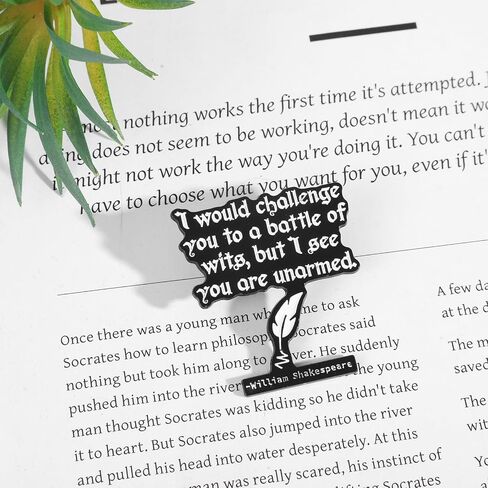 nothing works the first time it's attempted. J
does not seem to be working, doesn't mean it wo
might not work the way you're doing it. You can't
have to choose what you want for you, even if it'
I would challenge
you to a battle of
wits, but I see
you are unarmed.
-William Shakespeare
Once there was a young man wh me to ask
Socrates how to learn philosop Socrates said
nothing but took him along to ver. He suddenly
pushed him into the river he young
man thought Socrates was kidding so he didn't take
it to heart. But Socrates also jumped into the river
and pulled his head into water desperately. At this
man was really scared, his instinct of
Socrates
A few da
at the d
The m
saved
The
wit
Yo